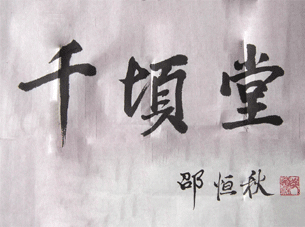 千頃堂
邵恒秋